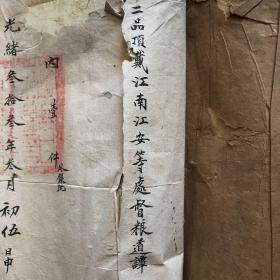 二品頂戴江南江安等處督粮道譚
內壹件
光緒叁拾叁年叁月初伍日申